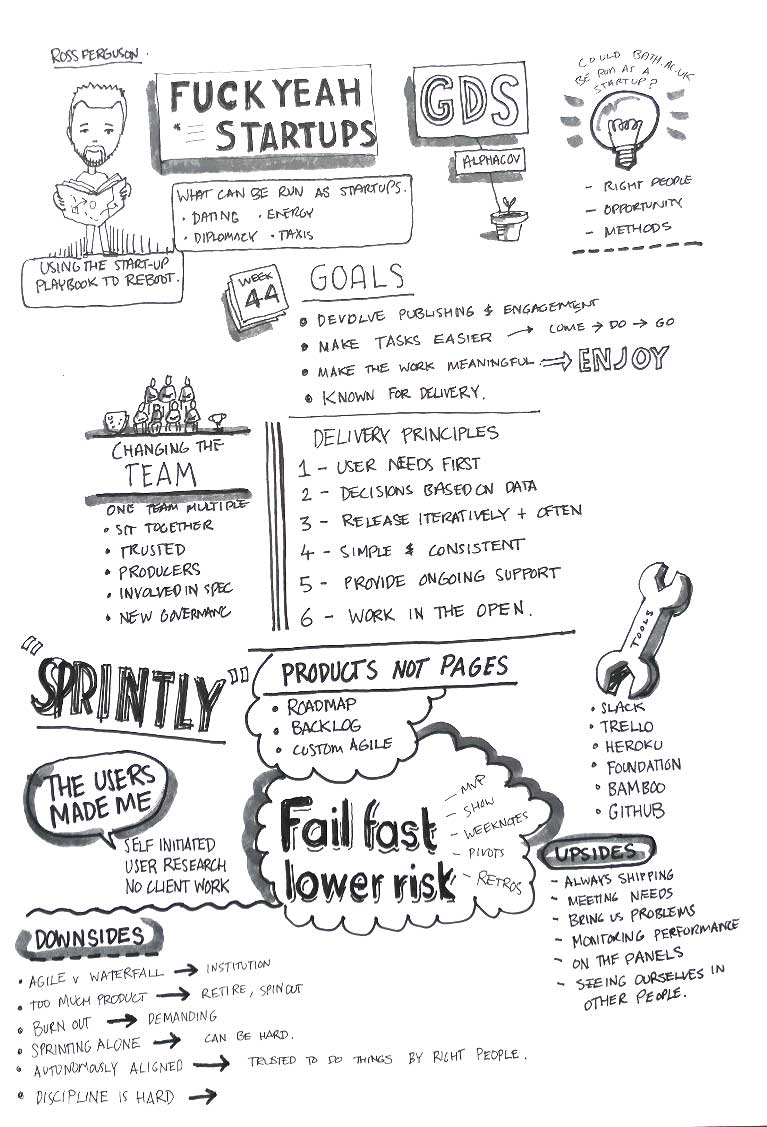 ROSS FERGUSON.
FUCK YEAH
STARTUPS
GDS
ALPHAGOV
COULD BATH.AC.UK
BE RUN AS A
STARTUP?
- RIGHT PEOPLE
- OPPORTUNITY
- METHODS
WHAT CAN BE RUN AS STARTUPS.
• DATING • ENERGY
• DIPLOMACY • TAXIS
USING THE START-UP
PLAYBOOK TO REBOOT.
WEEK
44
GOALS
• DEVOLVE PUBLISHING & ENGAGEMENT
• MAKE TASKS EASIER → COME → DO → GO
• MAKE THE WORK MEANINGFUL ⇒ ENJOY
• KNOWN FOR DELIVERY.
CHANGING THE
TEAM
ONE TEAM MULTIPLE
• SIT TOGETHER
• TRUSTED
• PRODUCERS
• INVOLVED IN SPEC
• NEW GOVERNANC
DELIVERY PRINCIPLES
1 - USER NEEDS FIRST
2 - DECISIONS BASED ON DATA
3 - RELEASE ITERATIVELY + OFTEN
4 - SIMPLE & CONSISTENT
5 - PROVIDE ONGOING SUPPORT
6 - WORK IN THE OPEN.
TOOLS
• SLACK
• TRELLO
• HEROKU
• FOUNDATION
• BAMBOO
• GITHUB
"SPRINTLY"
PRODUCTS NOT PAGES
• ROADMAP
• BACKLOG
• CUSTOM AGILE
THE USERS
MADE ME
SELF INITIATED
USER RESEARCH
NO CLIENT WORK
Fail fast
lower risk
- MVP
- SHOW
- WEEKNOTES
- PIVOTS
- RETROS
UPSIDES
- ALWAYS SHIPPING
- MEETING NEEDS
- BRING US PROBLEMS
- MONITORING PERFORMANCE
- ON THE PANELS
- SEEING OURSELVES IN
OTHER PEOPLE.
DOWNSIDES
• AGILE v WATERFALL → INSTITUTION
• TOO MUCH PRODUCT → RETIRE, SPIN OUT
• BURN OUT → DEMANDING
• SPRINTING ALONE → CAN BE HARD.
• AUTONOMOUSLY ALIGNED → TRUSTED TO DO THINGS BY RIGHT PEOPLE.
• DISCIPLINE IS HARD →